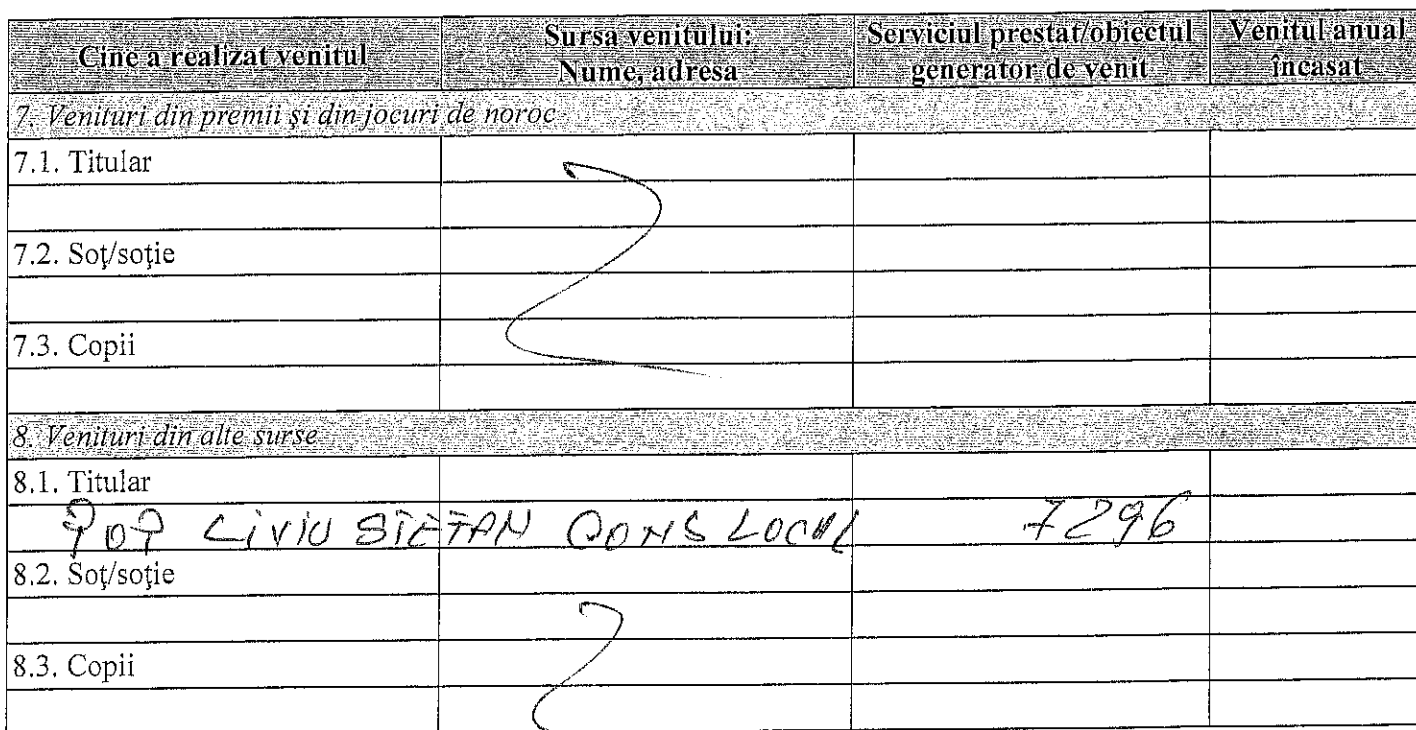 Cine a realizat venitul
Sursa venitului:
Nume, adresa
Serviciul prestat/obiectul
generator de venit
Venitul anual
încasat
7. Venituri din premii şi din jocuri de noroc
7.1. Titular
7.2. Soţ/soţie
7.3. Copii
8. Venituri din alte surse
8.1. Titular
POP LIVIU STEFAN CONS LOCAL 7296
8.2. Soţ/soţie
8.3. Copii